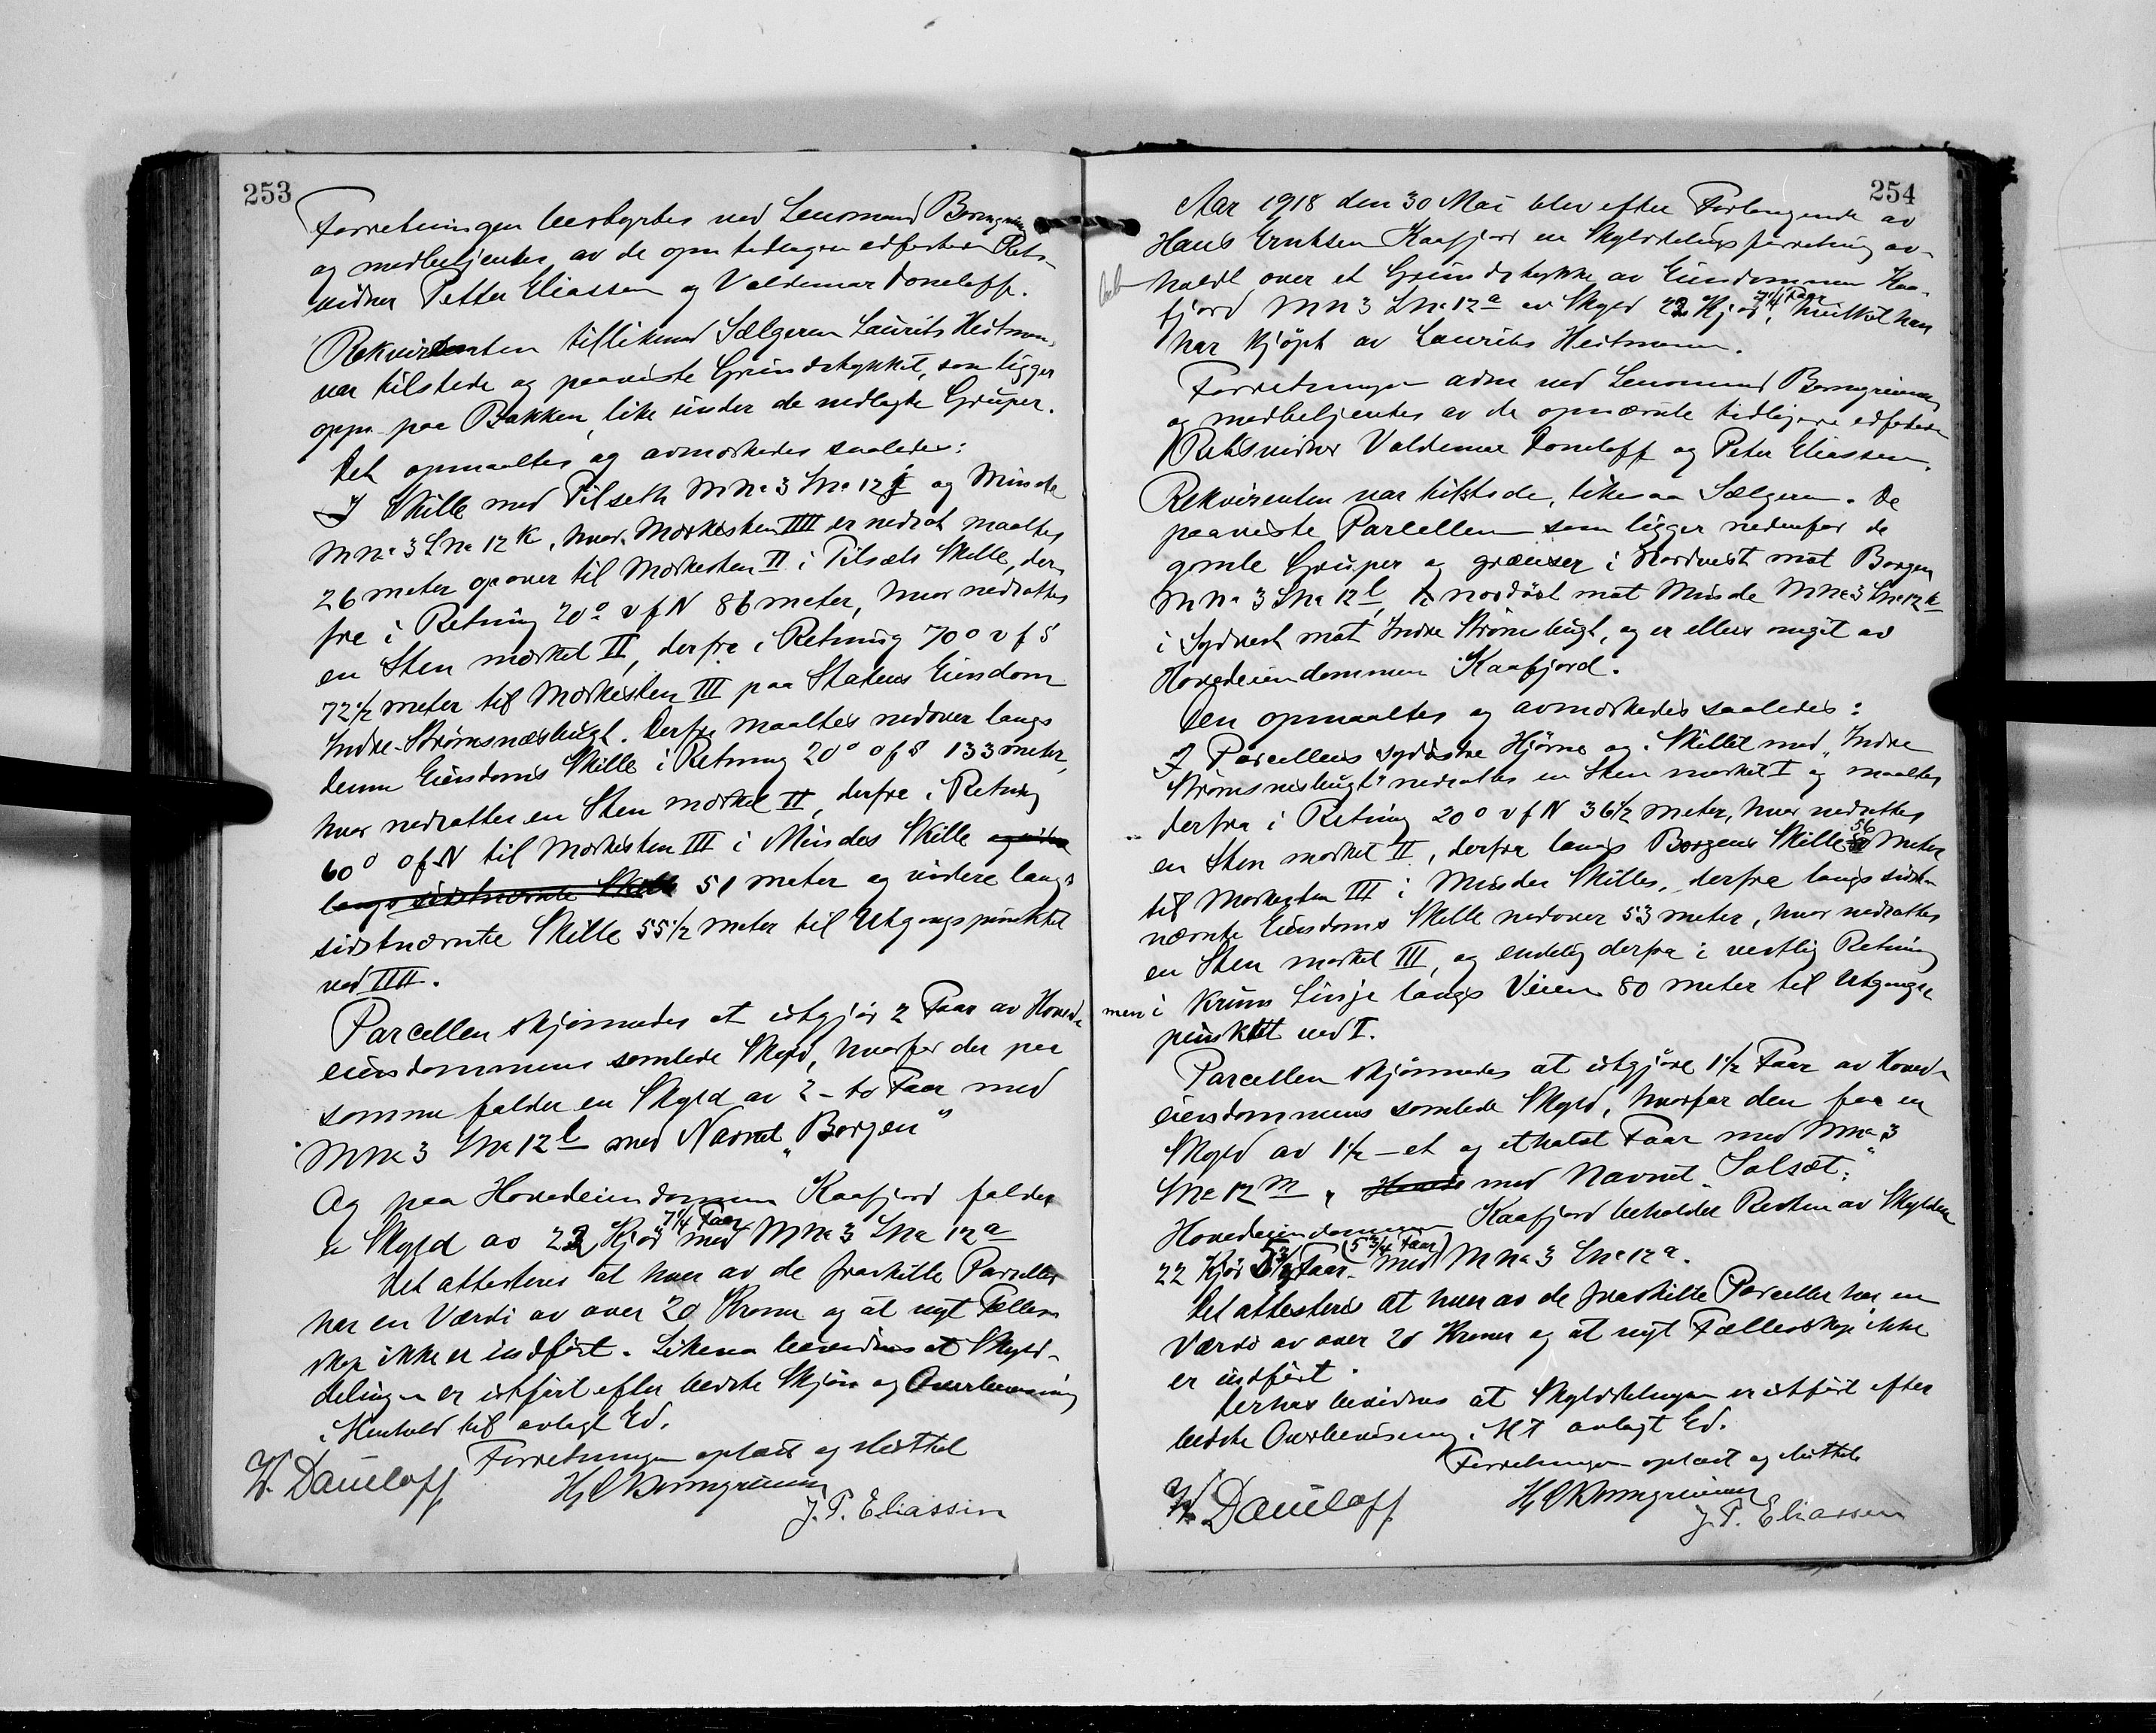 253
Forretningen bestyrtes ved Lensmand Bomgrening
og medbetjentes av de opn tidlagen edfestede Rets-
vidner Petter Eliassen og Valdemar Doneloff.
Rekvirenten tillikemed Sælgeren Laurits Heitmann
var tilstede og paaviste Grundstykket, som ligger
oppe paa Bakken, like under de nedlagte Gruper.
Det opmaaltes og avmerkedes saaledes:
I Skille med Tilseth Mno 3 Lno 12 j og Minde
Mno 3 Lno 12 k, hvor Merkesten IIII er nedsat maaltes
26 meter opover til Merkesten II i Tilsæts Skille, der-
fra i Retning 20° v f N 86 meter, hvor nedsattes
en Sten merket II, derfra i Retning 70° v f S
72 1/2 meter til Merkesten III paa Statens Eiendom
Indre-Strømsnæsbugt. Derfra maaltes nedover langs
denne Eiendoms Skille i Retning 20° o f S 133 meter,
hvor nedsattes en Sten merket II, derfra i Retning
60° o f N til Merkesten III i Mindes Skille og videre
langs sidstnævnte Skille 51 meter og videre langs
sidstnævnte Skille 55 1/2 meter til Utgangspunktet
ved IIII.
Parcellen skjønnedes at utgjør 2 Faar av Hoved-
eiendommens samlede Skyld, hvorfor der paa
samme falder en Skyld av 2 - to Faar med
Mno 3 Lno 12 l med Navnet „Borgen"
Og paa Hovedeiendommen Kaafjord falder
en Skyld av 22 Kjør 7 1/4 Faar med Mno 3 Lno 12 a
Det attesteres at hver av de fraskilte Parceller
har en Værdi av over 20 Kroner og at nyt Fælles-
skap ikke er indført. Likesaa bevidnes at Skyld-
delingen er utført efter bedste Skjøn og Overbevisning
i Henhold til avlagt Ed.
Forretningen oplæst og sluttet
W. Daneloff
J. P. Eliassen
254
Aar 1918 den 30 Mai blev efter Forlangende av
Hans Eriksen Kaafjord en Skylddelingsforretning av-
holdt over et Grundstykke av Eiendommen Kaa-
fjord Mn 3 Lno 12 a av Skyld 22 Kjør 7 1/4 Faar, hvilket han
har kjøpt av Laurits Heitmann.
Forretningen adm ved Lensmand Bomgrening
og medbetjentes av de opnævnte tidligere edfestede
Retsvidner Valdemar Doneloff og Peter Eliassen.
Rekvirenten var tilstede, likesaa Sælgeren. De
paaviste Parcellen som ligger nedenfor de
gamle Gruper og grænser i Nordvest mot Borgen
Mno 3 Lno 12 l, i nordøst mot Minde Mno 3 Lno 12 k
i Sydvest mot Indre Strømsbugt, og er ellers omgit av
Hovedeiendommen Kaafjord.
Den opmaaltes og avmerkedes saaledes:
I Parcellens sydøstre Hjørne og i Skillet med „Indre
Strømsnesbugt" nedsattes en Sten merket I og maaltes
derfra i Retning 20° v f N 36 1/2 meter, hvor nedsattes
en Sten merket II, derfra langs Borgens Skille 56 meter
til Merkesten III i Mindes Skilles, derfra langs sidst-
nævnte Eiendoms Skille nedover 53 meter, hvor nedsattes
en Sten merket III, og endelig derfra i vestlig Retning
men i krum Linje langs Veien 80 meter til Utgangs-
punktet ved I.
Parcellen skjønnedes at utgjøre 1 1/2 Faar av Hoved-
eiendommens samlede Skyld, hvorfor den faar en
Skyld av 1 1/2 - et og et halvt Faar med Mno 3
Lno 12 m, med Navnet „Solsæt".
Hovedeiendommen Kaafjord beholder Resten av Skylden
22 Kjør 5 3/4 Faar (5 3/4 Faar) med Mno 3 Lno 12 a.
Det attesteres at hver av de fraskilte Parceller har en
Værdi av over 20 Kroner og at nyt Fællesskap ikke
er indført.
Derhos bevidnes at Skylddelingen er utført efter
bedste Overbevisning i H t avlagt Ed.
Forretningen oplæst og sluttet
W. Daneloff
J. P. Eliassen